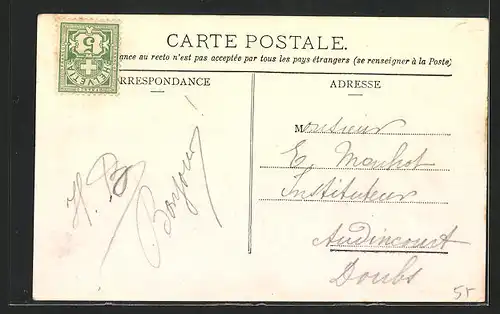 HELVETIA 5
CARTE POSTALE.
ance au recto n'est pas acceptée par tous les pays étrangers (se renseigner à la Poste)
RRESPONDANCE
ADRESSE
Bonjour!
Monsieur
E. Mauhot
Instituteur
Audincourt
Doubs